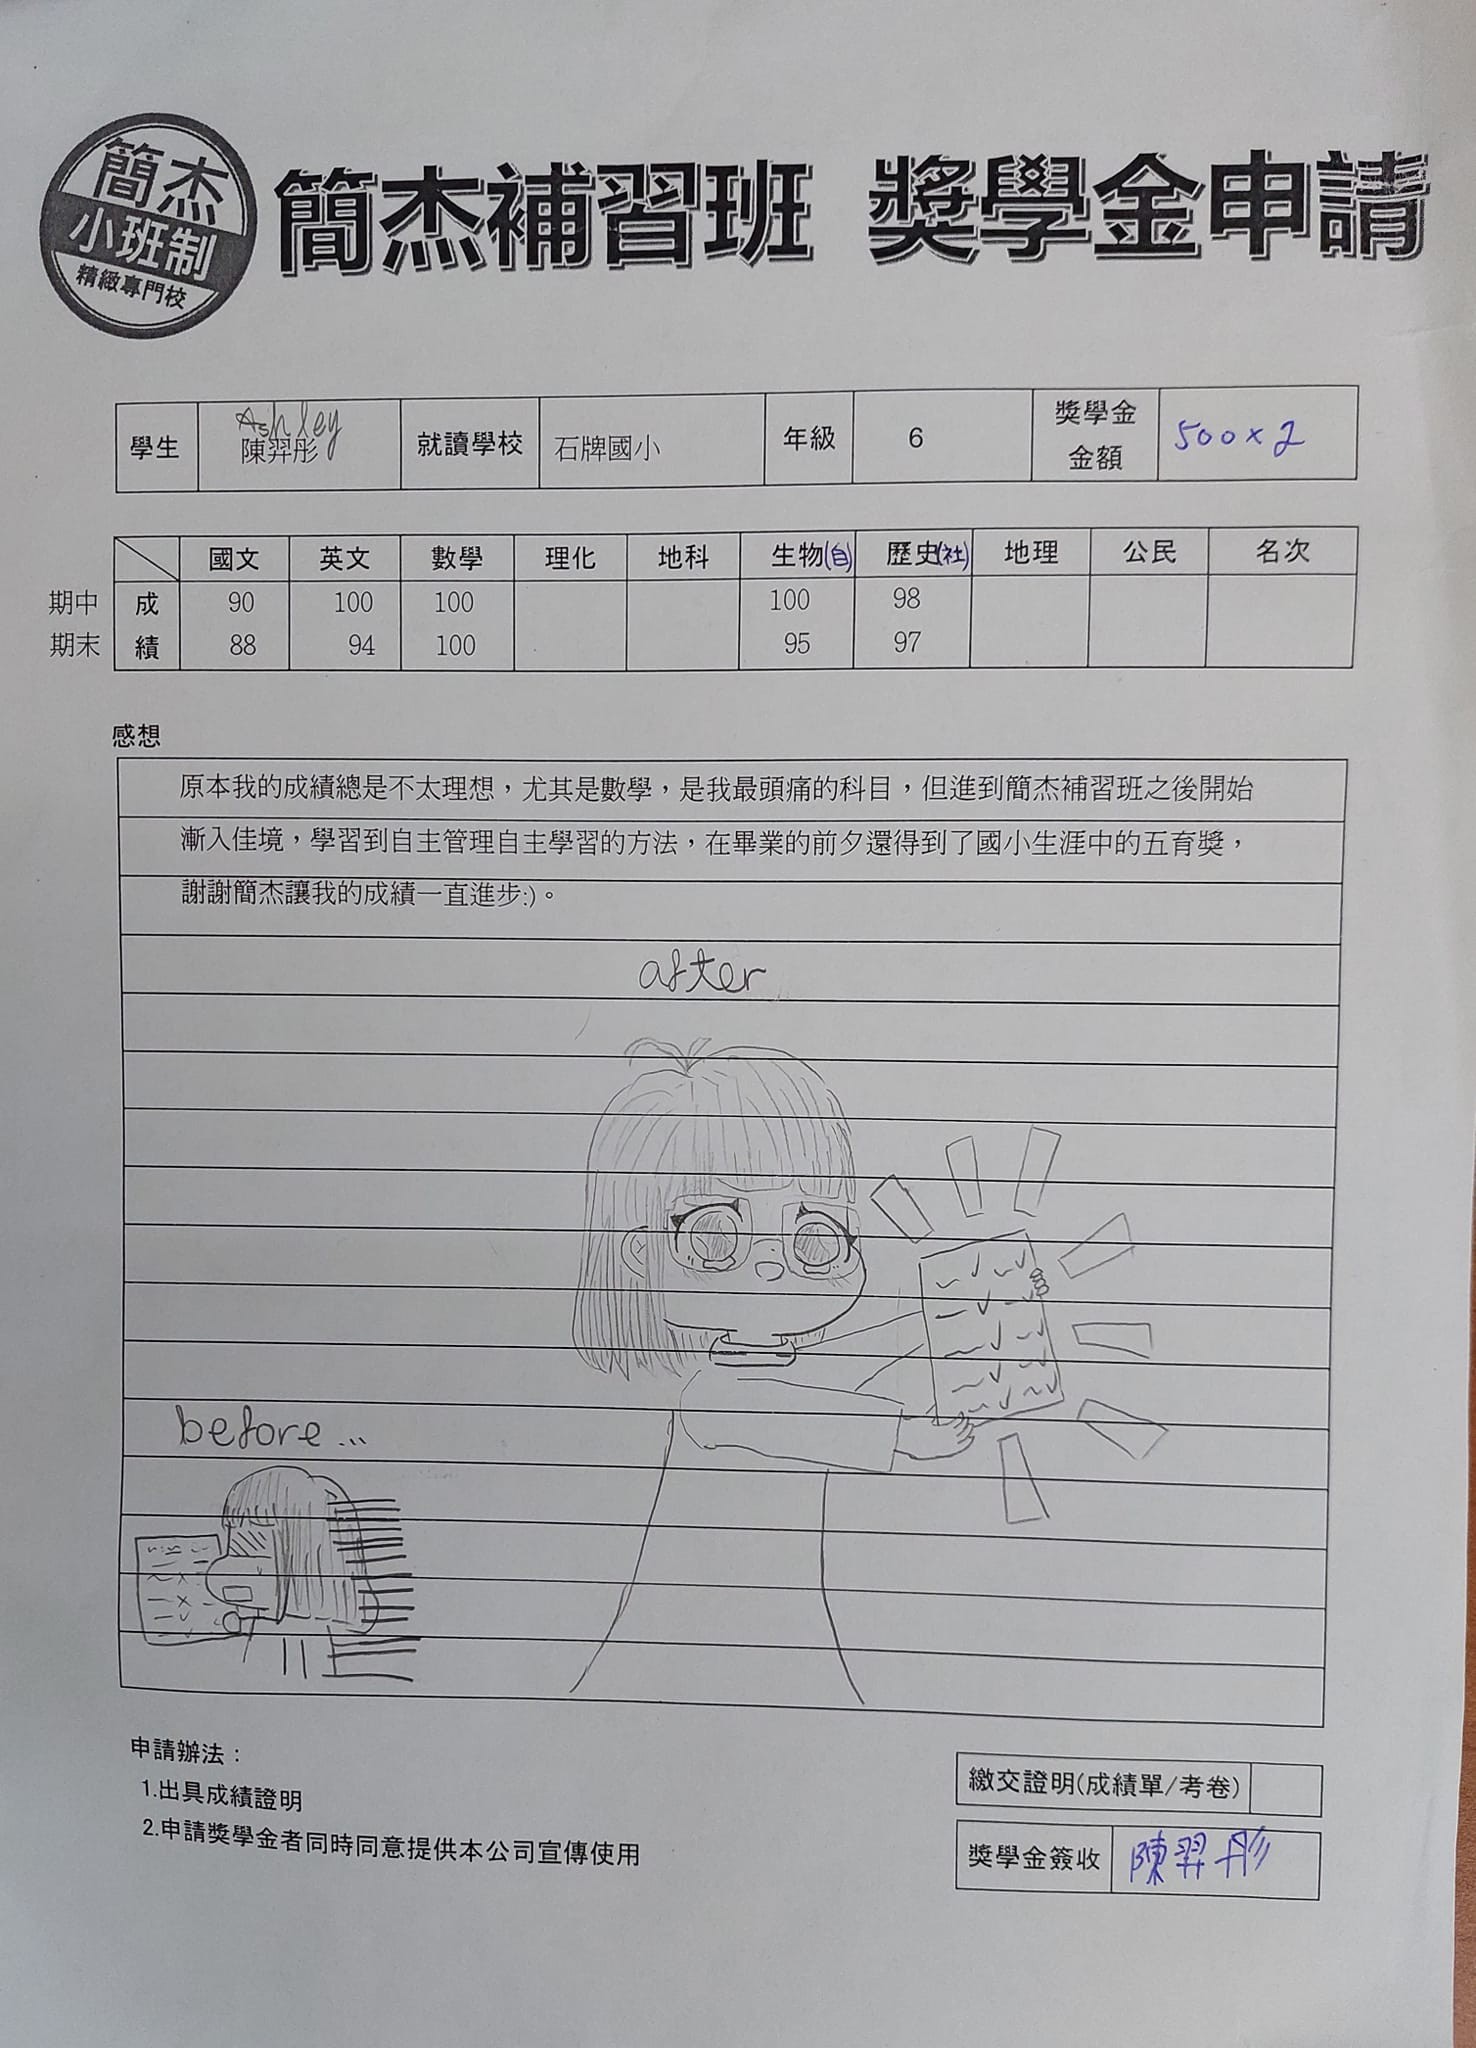 簡杰
小班制
精緻專門校
簡杰補習班 獎學金申請
學生 Ashley 陳羿彤 就讀學校 石牌國小 年級 6 獎學金金額 500×2
國文 英文 數學 理化 地科 生物(自) 歷史(社) 地理 公民 名次
期中 成 90 100 100 100 98
期末 績 88 94 100 95 97
感想
原本我的成績總是不太理想，尤其是數學，是我最頭痛的科目，但進到簡杰補習班之後開始
漸入佳境，學習到自主管理自主學習的方法，在畢業的前夕還得到了國小生涯中的五育獎，
謝謝簡杰讓我的成績一直進步:)。
after
before...
申請辦法：
1.出具成績證明
2.申請獎學金者同時同意提供本公司宣傳使用
繳交證明(成績單/考卷)
獎學金簽收 陳羿彤